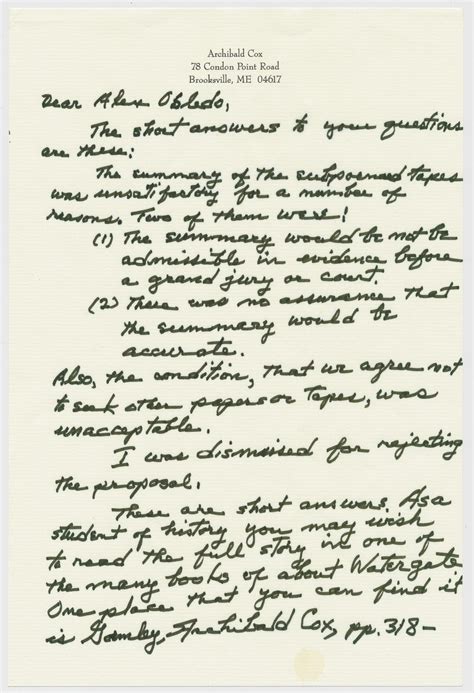 Archibald Cox
78 Condon Point Road
Brooksville, ME 04617
Dear Alex Obledo,
The short answers to your questions
are these:
The summary of the subpoenaed tapes
was unsatifactory for a number of
reasons. Two of them were:
(1) The summary would be not be
admissible in evidence before
a grand jury or court.
(2) There was no assurance that
the summary would be
accurate.
Also, the condition, that we agree not
to seek other papers or tapes, was
unacceptable.
I was dismissed for rejecting
the proposal.
These are short answers. As a
student of history you may wish
to read the full story in one of
the many books of about Watergate
One place that you can find it
is Gormley, Archibald Cox, pp. 318-